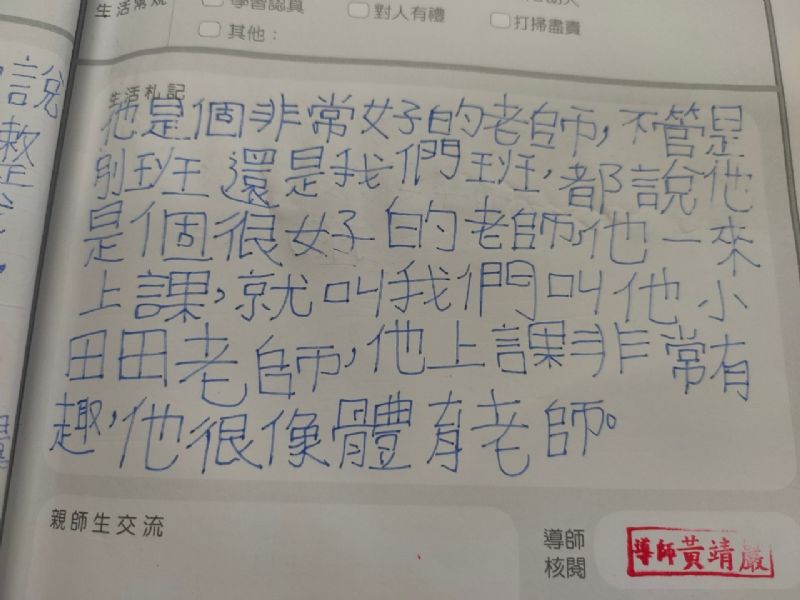 生活常規
學習認真
對人有禮
打掃盡責
其他：
說
整
生活札記
他是個非常好的老師，不管是
別班還是我們班，都說他
是個很好的老師，他一來
上課，就叫我們叫他小
田田老師，他上課非常有
趣，他很像體育老師。
親師生交流
導師
核閱
導師黃靖嚴